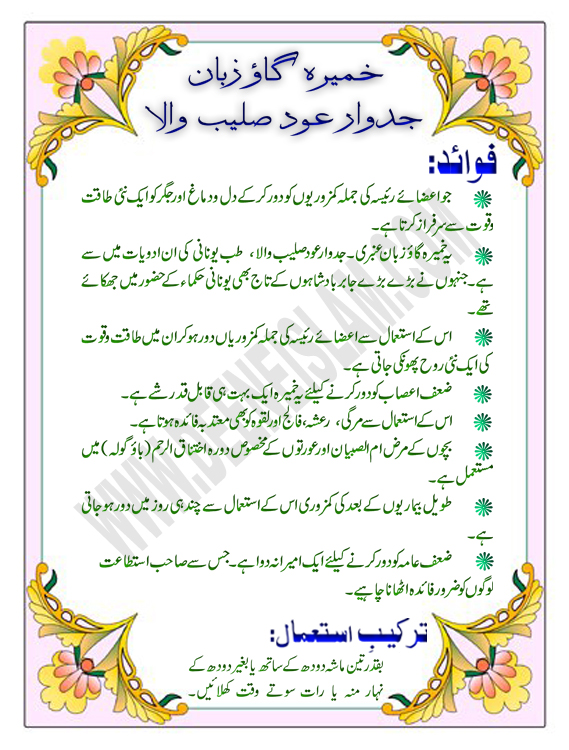 خمیرہ گاؤ زبان
جدوار عود صلیب والا
فوائد:
جو اعضائے رئیسہ کی جملہ کمزوریوں کو دور کرکے دل و دماغ اور جگر کو ایک نئی طاقت
وقوت سے سرفراز کرتا ہے۔
یہ خمیرہ گاؤ زبان عنبری۔ جدوار عود صلیب والا، طب یونانی کی ان ادویات میں سے
ہے۔ جنہوں نے بڑے بڑے جابر بادشاہوں کے تاج بھی یونانی حکماء کے حضور میں جھکائے
تھے۔
اس کے استعمال سے اعضائے رئیسہ کی جملہ کمزوریاں دور ہو کر ان میں طاقت وقوت
کی ایک نئی روح پھونکی جاتی ہے۔
ضعف اعصاب کو دور کرنے کیلئے یہ خمیرہ ایک بہت ہی قابل قدر شے ہے۔
اس کے استعمال سے مرگی، رعشہ، فالج اور لقوہ کو بھی معتد بہ فائدہ ہوتا ہے۔
بچوں کے مرض ام الصبیان اور عورتوں کے مخصوص دورہ اختناق الرحم (باؤ گولہ) میں
مستعمل ہے۔
طویل بیماریوں کے بعد کی کمزوری اس کے استعمال سے چند ہی روز میں دور ہو جاتی
ہے۔
ضعف عامہ کو دور کرنے کیلئے ایک امیرانہ دوا ہے۔ جس سے صاحب استطاعت
لوگوں کو ضرور فائدہ اٹھانا چاہیے۔
ترکیبِ استعمال:
بقدر تین ماشہ دودھ کے ساتھ یا بغیر دودھ کے
نہار منہ یا رات سوتے وقت کھلائیں۔
WWW.DEENEISLAM.COM